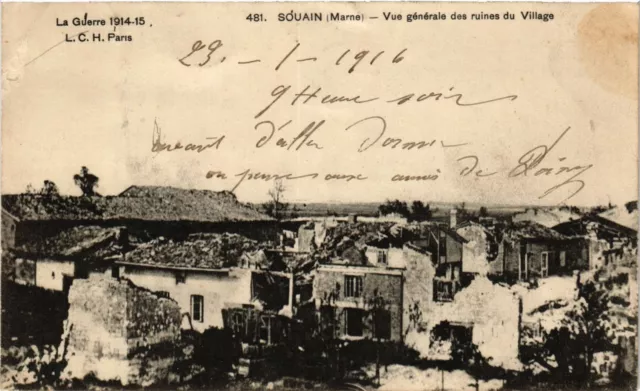 La Guerre 1914-15
L. C. H. Paris
481. SOUAIN (Marne) — Vue générale des ruines du Village
29. - 1 - 1916
9 Heure soir
avant d'aller Dormir
on pense aux amis de